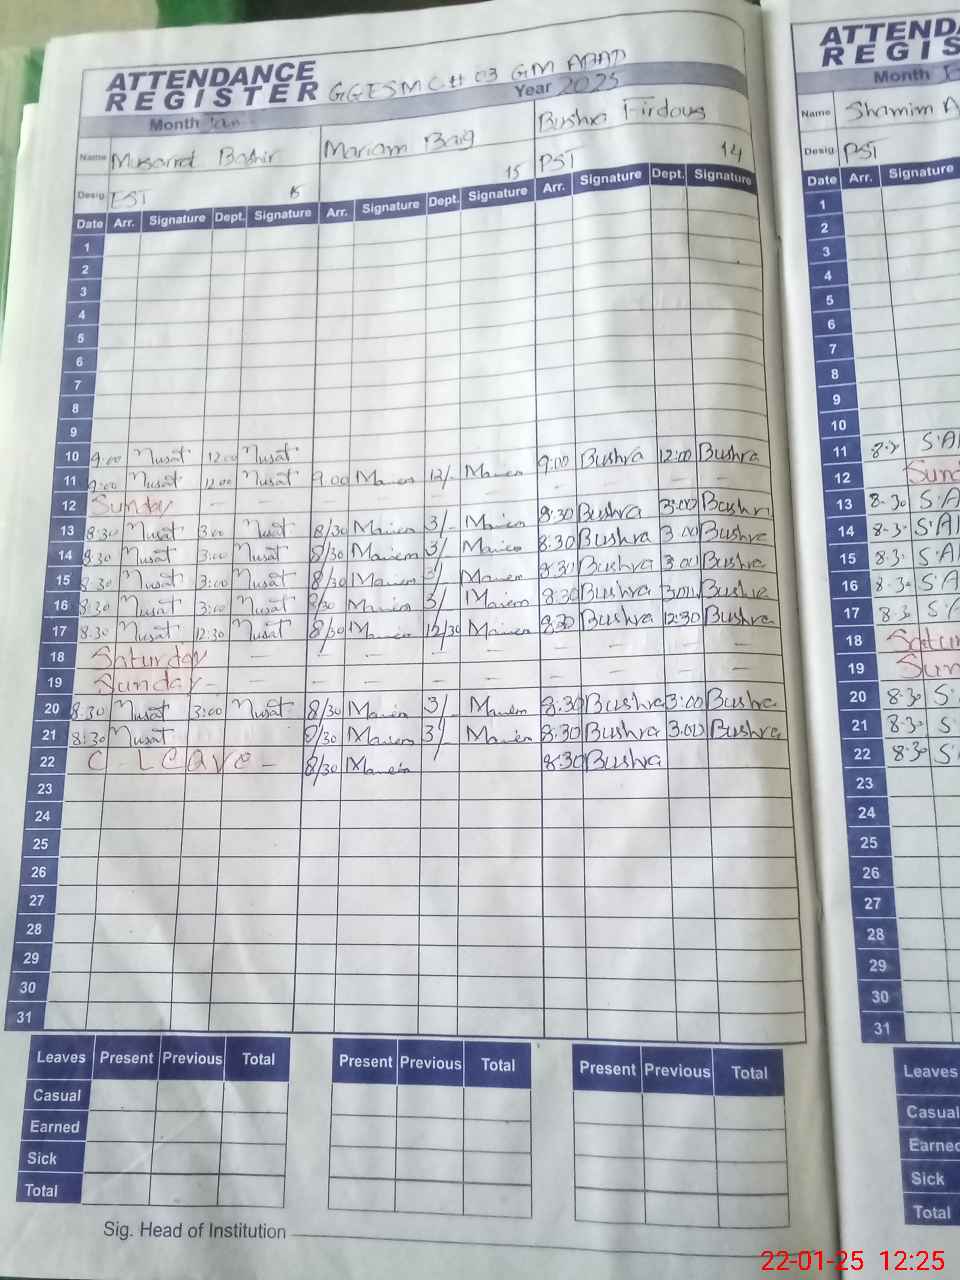 ATTENDANCE
REGISTER GGESMC#03 GM ABAD
Month Jan Year 2025
Name Musarrat Bashir Mariam Baig Bushra Firdous
Desig. EST 15 15 PST 14
Date Arr. Signature Dept. Signature Arr. Signature Dept. Signature Arr. Signature Dept. Signature
1
2
3
4
5
6
7
8
9
10 9:00 Nusat 12:00 Nusat 9:00 Bushra 12:00 Bushra
11 9:00 Nusat 12:00 Nusat 9.00 12/- - - - -
12 Sunday - - - - - -
13 8:30 Nusat 3:00 Nusat 8/30 3/- 8:30 Bushra 3:00 Bushra
14 8:30 Nusat 3:00 Nusat 8/30 3/ 8:30 Bushra 3:00 Bushra
15 8:30 Nusat 3:00 Nusat 8/30 3/ 8:30 Bushra 3:00 Bushra
16 8:30 Nusat 3:00 Nusat 8/30 3/ 8:30 Bushra 3:00 Bushra
17 8:30 Nusat 12:30 Nusat 8/30 12/30 8:30 Bushra 12:30 Bushra
18 Saturday - - - - - - - - -
19 Sunday - - - - - - - - -
20 8:30 Nusat 3:00 Nusat 8/30 3/ 8:30 Bushra 3:00 Bushra
21 8:30 Nusat 8/30 3/- 8:30 Bushra 3:00 Bushra
22 C - Leave - 8/30 8:30 Bushra
23
24
25
26
27
28
29
30
31
Leaves Present Previous Total Present Previous Total Present Previous Total
Casual
Earned
Sick
Total
Sig. Head of Institution
ATTENDA
REGIS
Month
Name Shamim A
Desig. PST
Date Arr. Signature
1
2
3
4
5
6
7
8
9
10
11 S.A
12 Sund
13 8-30 S.A
14 S.A
15 S.A
16 8-30 S.A
17 S.A
18 Satur
19 Sun
20 8-30 S.
21 8-30 S
22 8:30 S
23
24
25
26
27
28
29
30
31
Leaves
Casual
Earned
Sick
Total
22-01-25 12:25